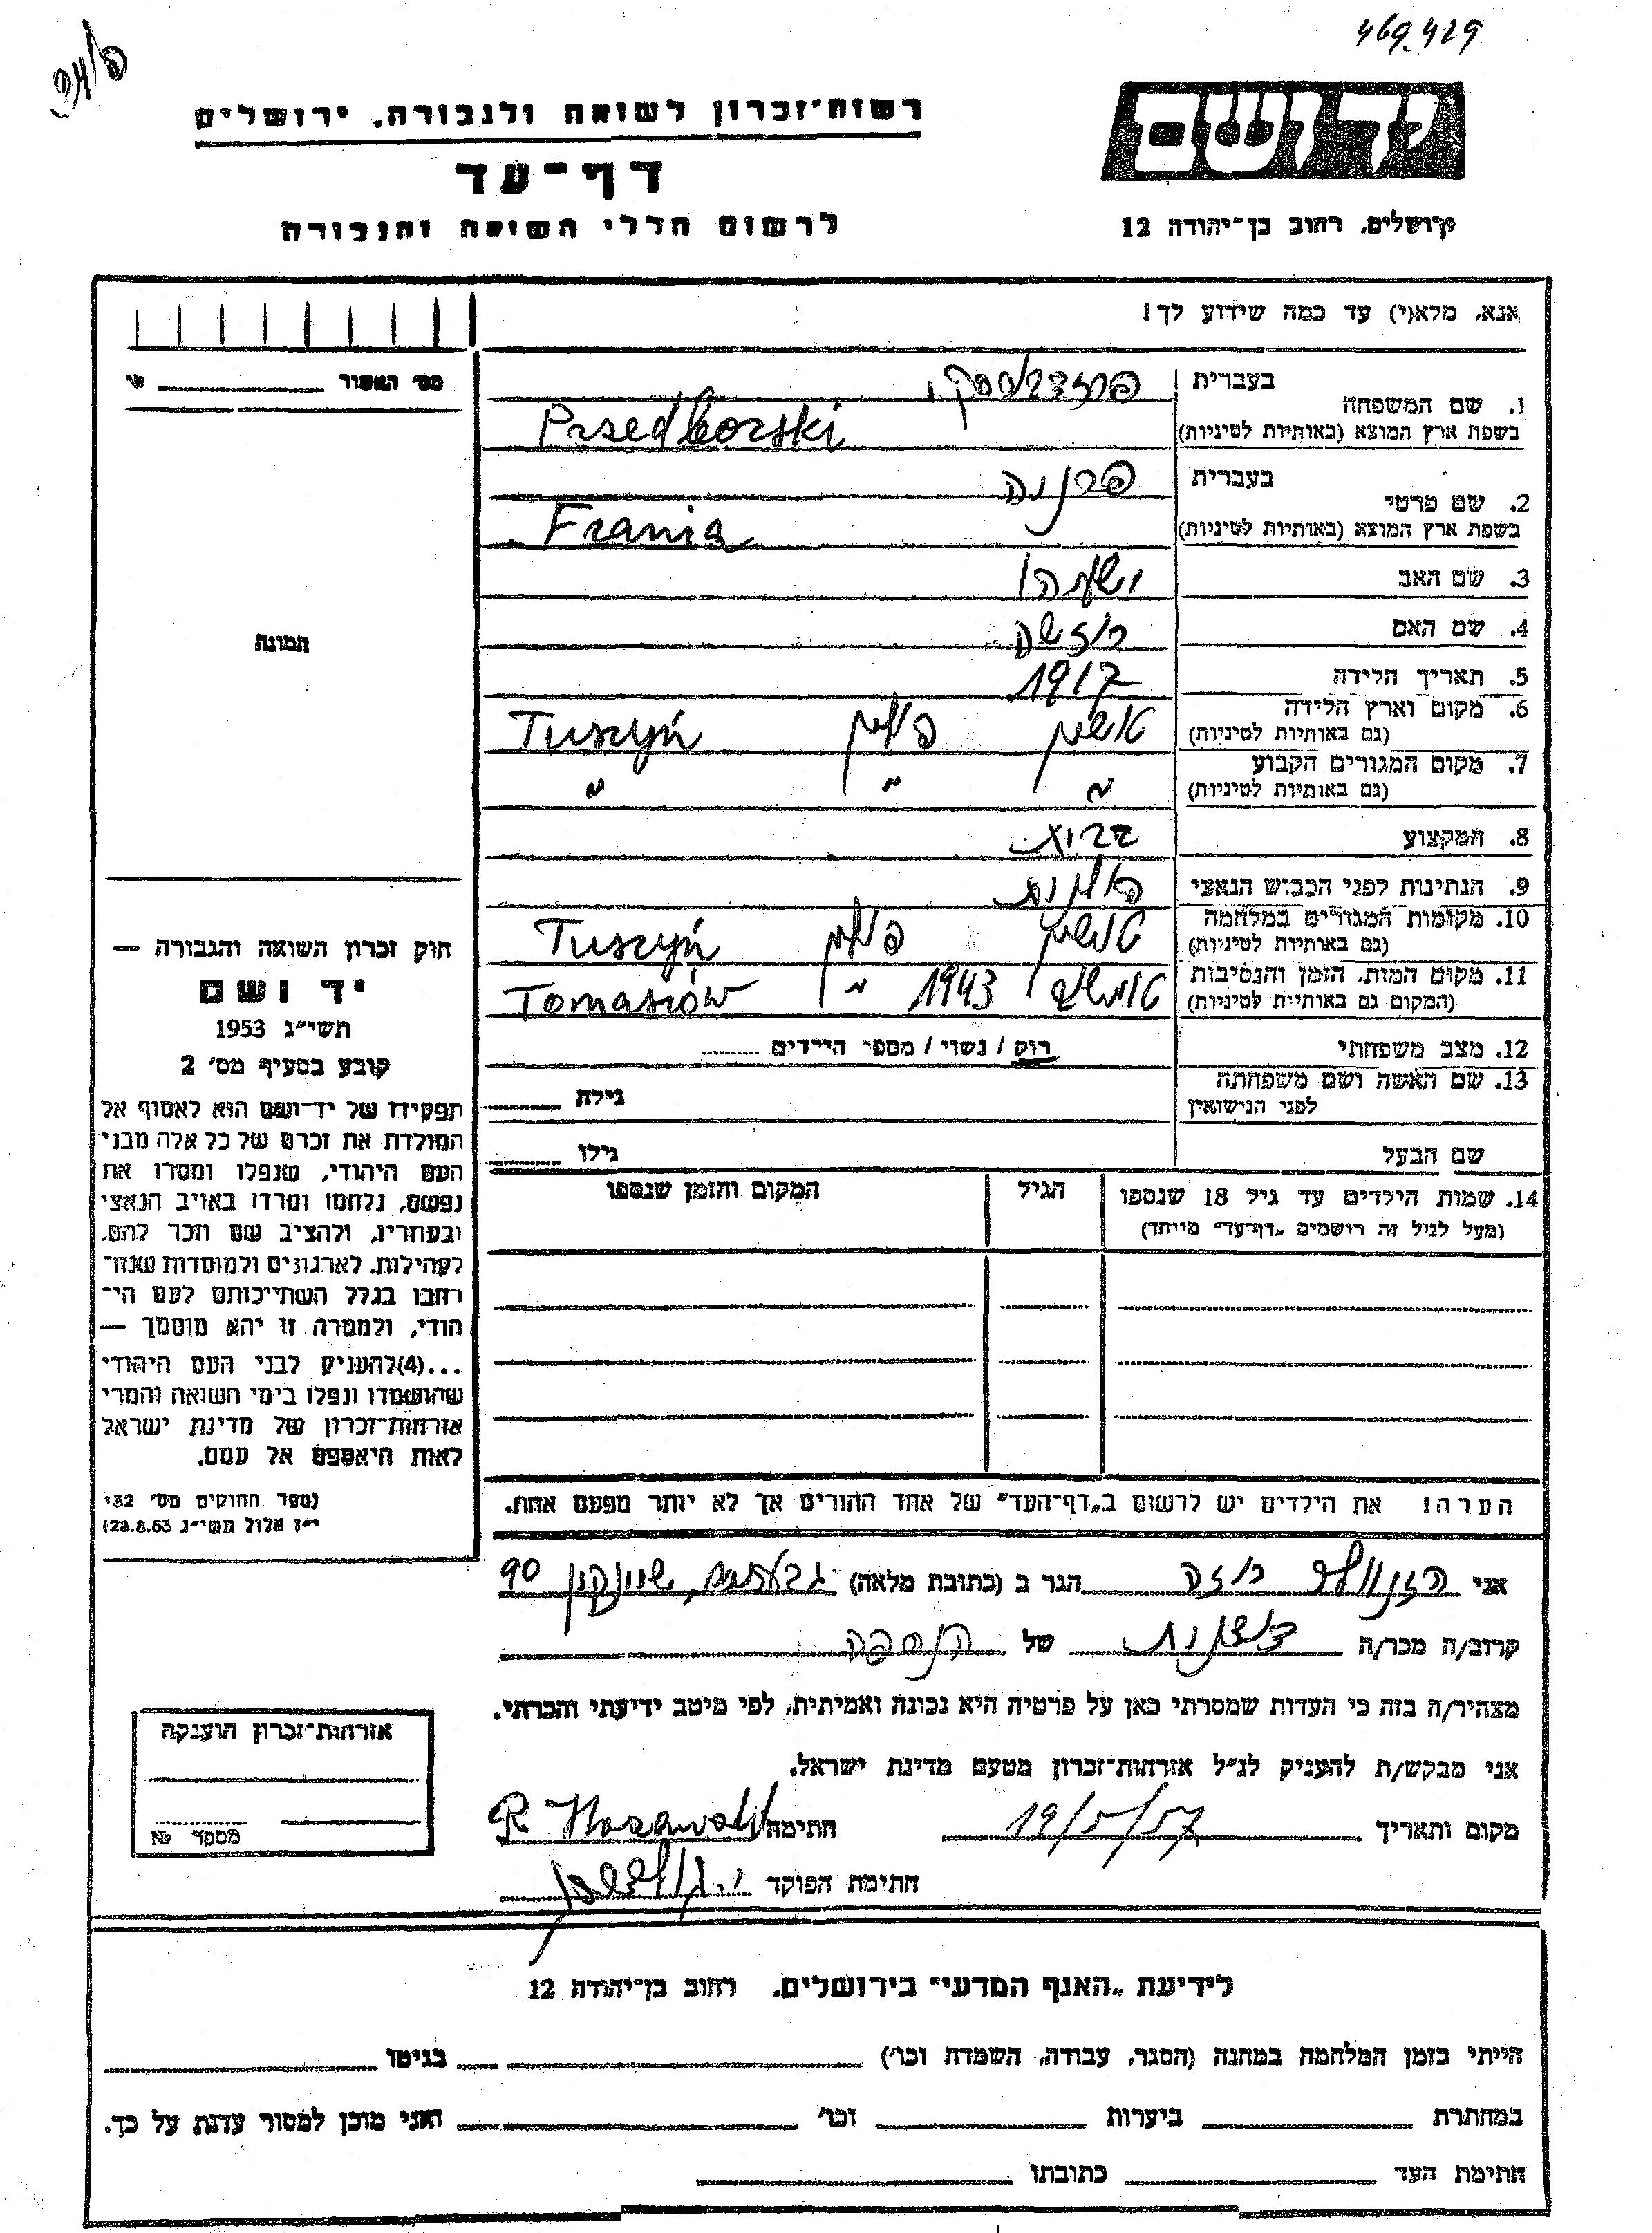 469.429
רשות־זכרון לשואה ולגבורה, ירושלים
דף־עד
לרשום חללי השואה והגבורה
יד ושם
ירושלים, רחוב בן־יהודה 12
אנא, מלא(י) עד כמה שידוע לך!
1. שם המשפחה
בעברית
בשפת ארץ המוצא (באותיות לטיניות)
Przedborski
2. שם פרטי
בעברית פרניה
בשפת ארץ המוצא (באותיות לטיניות)
Frania
3. שם האב ישעיהו
4. שם האם
5. תאריך הלידה 1917
6. מקום וארץ הלידה
(גם באותיות לטיניות)
טושין פולין Tuszyń
7. מקום המגורים הקבוע
(גם באותיות לטיניות)
" " "
8. המקצוע
9. הנתינות לפני הכבוש הנאצי פולנית
10. מקומות המגורים במלחמה
(גם באותיות לטיניות)
טושין פולין Tuszyń
11. מקום המות, הזמן והנסיבות
(המקום גם באותיות לטיניות)
טומשוב 1943 " Tomaszów
12. מצב משפחתי רוק / נשוי / מספר הילדים
13. שם האשה ושם משפחתה
לפני הנישואין
גילה
שם הבעל גילו
14. שמות הילדים עד גיל 18 שנספו הגיל המקום והזמן שנספו
(מעל לגיל זה רושמים „דף־עד" מיוחד)
הערה! את הילדים יש לרשום ב„דף־העד" של אחד ההורים אך לא יותר מפעם אחת.
מס' האשור
תמונה
חוק זכרון השואה והגבורה —
יד ושם
תשי"ג 1953
קובע בסעיף מס' 2
תפקידו של יד־ושם הוא לאסוף אל
המולדת את זכרם של כל אלה מבני
העם היהודי, שנפלו ומסרו את
נפשם, נלחמו ומרדו באויב הנאצי
ובעוזריו, ולהציב שם וזכר להם,
לקהילות, לארגונים ולמוסדות שנח־
רבו בגלל השתייכותם לעם הי־
הודי, ולמטרה זו יהא מוסמך —
...(4)להעניק לבני העם היהודי
שהושמדו ונפלו בימי השואה והמרי
אזרחות־זכרון של מדינת ישראל
לאות היאספם אל עמם.
(ספר החוקים מס' 132
י"ז אלול תשי"ג 28.8.53)
אני רוזה הגר ב (כתובת מלאה) גבעתיים, שינקין 90
קרוב/ה מכר/ה של
מצהיר/ה בזה כי העדות שמסרתי כאן על פרטיה היא נכונה ואמיתית, לפי מיטב ידיעתי והכרתי.
אני מבקש/ת להעניק לנ"ל אזרחות־זכרון מטעם מדינת ישראל.
מקום ותאריך 19/5/57 חתימה
חתימת הפוקד
אזרחות־זכרון הוענקה
מספר №
לידיעת „האגף המדעי" בירושלים, רחוב בן־יהודה 12
הייתי בזמן המלחמה במחנה (הסגר, עבודה, השמדה וכו') בגיטו
במחתרת ביערות וכו' ואני מוכן למסור עדות על כך.
חתימת העד כתובתו